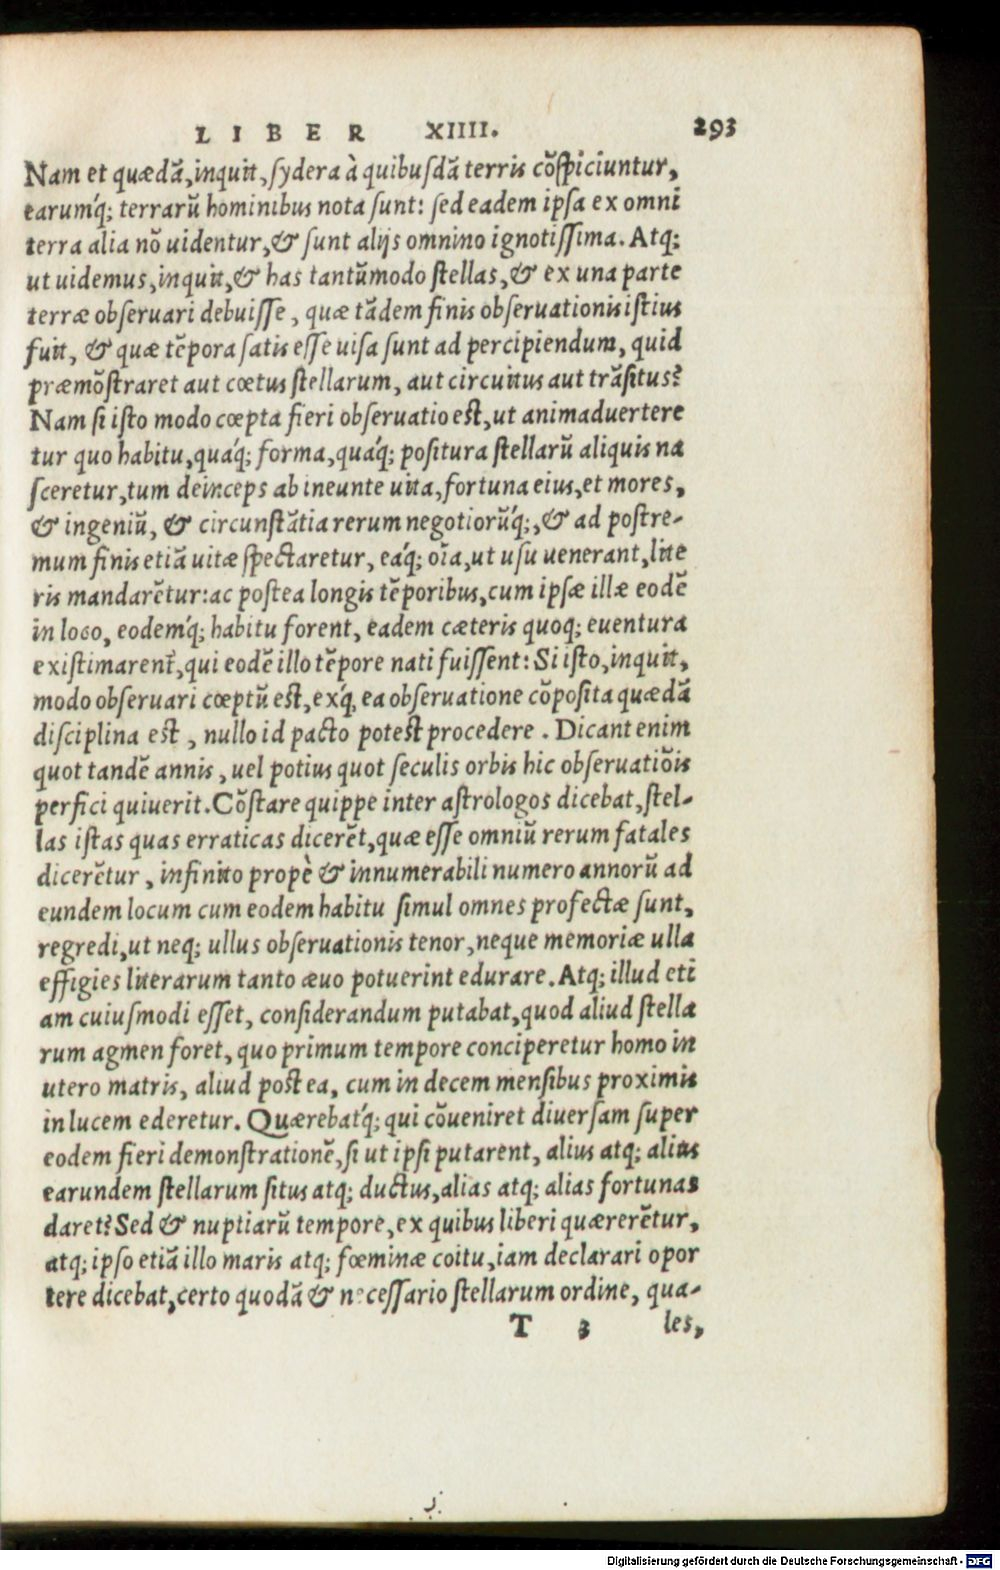 LIBER XIIII. 293
Nam et quædā, inquit, sydera à quibusdā terris cōspiciuntur,
earumq́; terrarū hominibus nota sunt: sed eadem ipsa ex omni
terra alia nō uidentur, & sunt alijs omnino ignotissima. Atq;
ut uidemus, inquit, & has tantūmodo stellas, & ex una parte
terræ obseruari debuisse, quæ tādem finis obseruationis istius
fuit, & quæ tēpora satis esse uisa sunt ad percipiendum, quid
præmōstraret aut cœtus stellarum, aut circuitus aut trāsitus?
Nam si isto modo cœpta fieri obseruatio est, ut animaduertere
tur quo habitu, quáq; forma, quáq; positura stellarū aliquis na
sceretur, tum deinceps ab ineunte uita, fortuna eius, et mores,
& ingeniū, & circunstātia rerum negotiorūq́;, & ad postre-
mum finis etiā uitæ spectaretur, eáq; oīa, ut usu uenerant, lite
ris mandarētur: ac postea longis tēporibus, cum ipsæ illæ eodē
in loco, eodemq́; habitu forent, eadem cæteris quoq; euentura
existimarent̄, qui eodē illo tēpore nati fuissent: Si isto, inquit,
modo obseruari cœptū est, exq́, ea obseruatione cōposita quædā
disciplina est, nullo id pacto potest procedere. Dicant enim
quot tandē annis, uel potius quot seculis orbis hic obseruatiōis
perfici quiuerit. Cōstare quippe inter astrologos dicebat, stel-
las istas quas erraticas dicerēt, quæ esse omniū rerum fatales
dicerētur, infinito propè & innumerabili numero annorū ad
eundem locum cum eodem habitu simul omnes profectæ sunt,
regredi, ut neq; ullus obseruationis tenor, neque memoriæ ulla
effigies literarum tanto æuo potuerint edurare. Atq; illud eti
am cuiusmodi esset, considerandum putabat, quod aliud stella
rum agmen foret, quo primum tempore conciperetur homo in
utero matris, aliud postea, cum in decem mensibus proximis
in lucem ederetur. Quærebatq́; qui cōueniret diuersam super
eodem fieri demonstrationē, si ut ipsi putarent, alius atq; alius
earundem stellarum situs atq; ductus, alias atq; alias fortunas
daret? Sed & nuptiarū tempore, ex quibus liberi quærerētur,
atq; ipso etiā illo maris atq; fœminæ coitu, iam declarari opor
tere dicebat, certo quodā & necessario stellarum ordine, qua-
T 3 les,
Digitalisierung gefördert durch die Deutsche Forschungsgemeinschaft - DFG